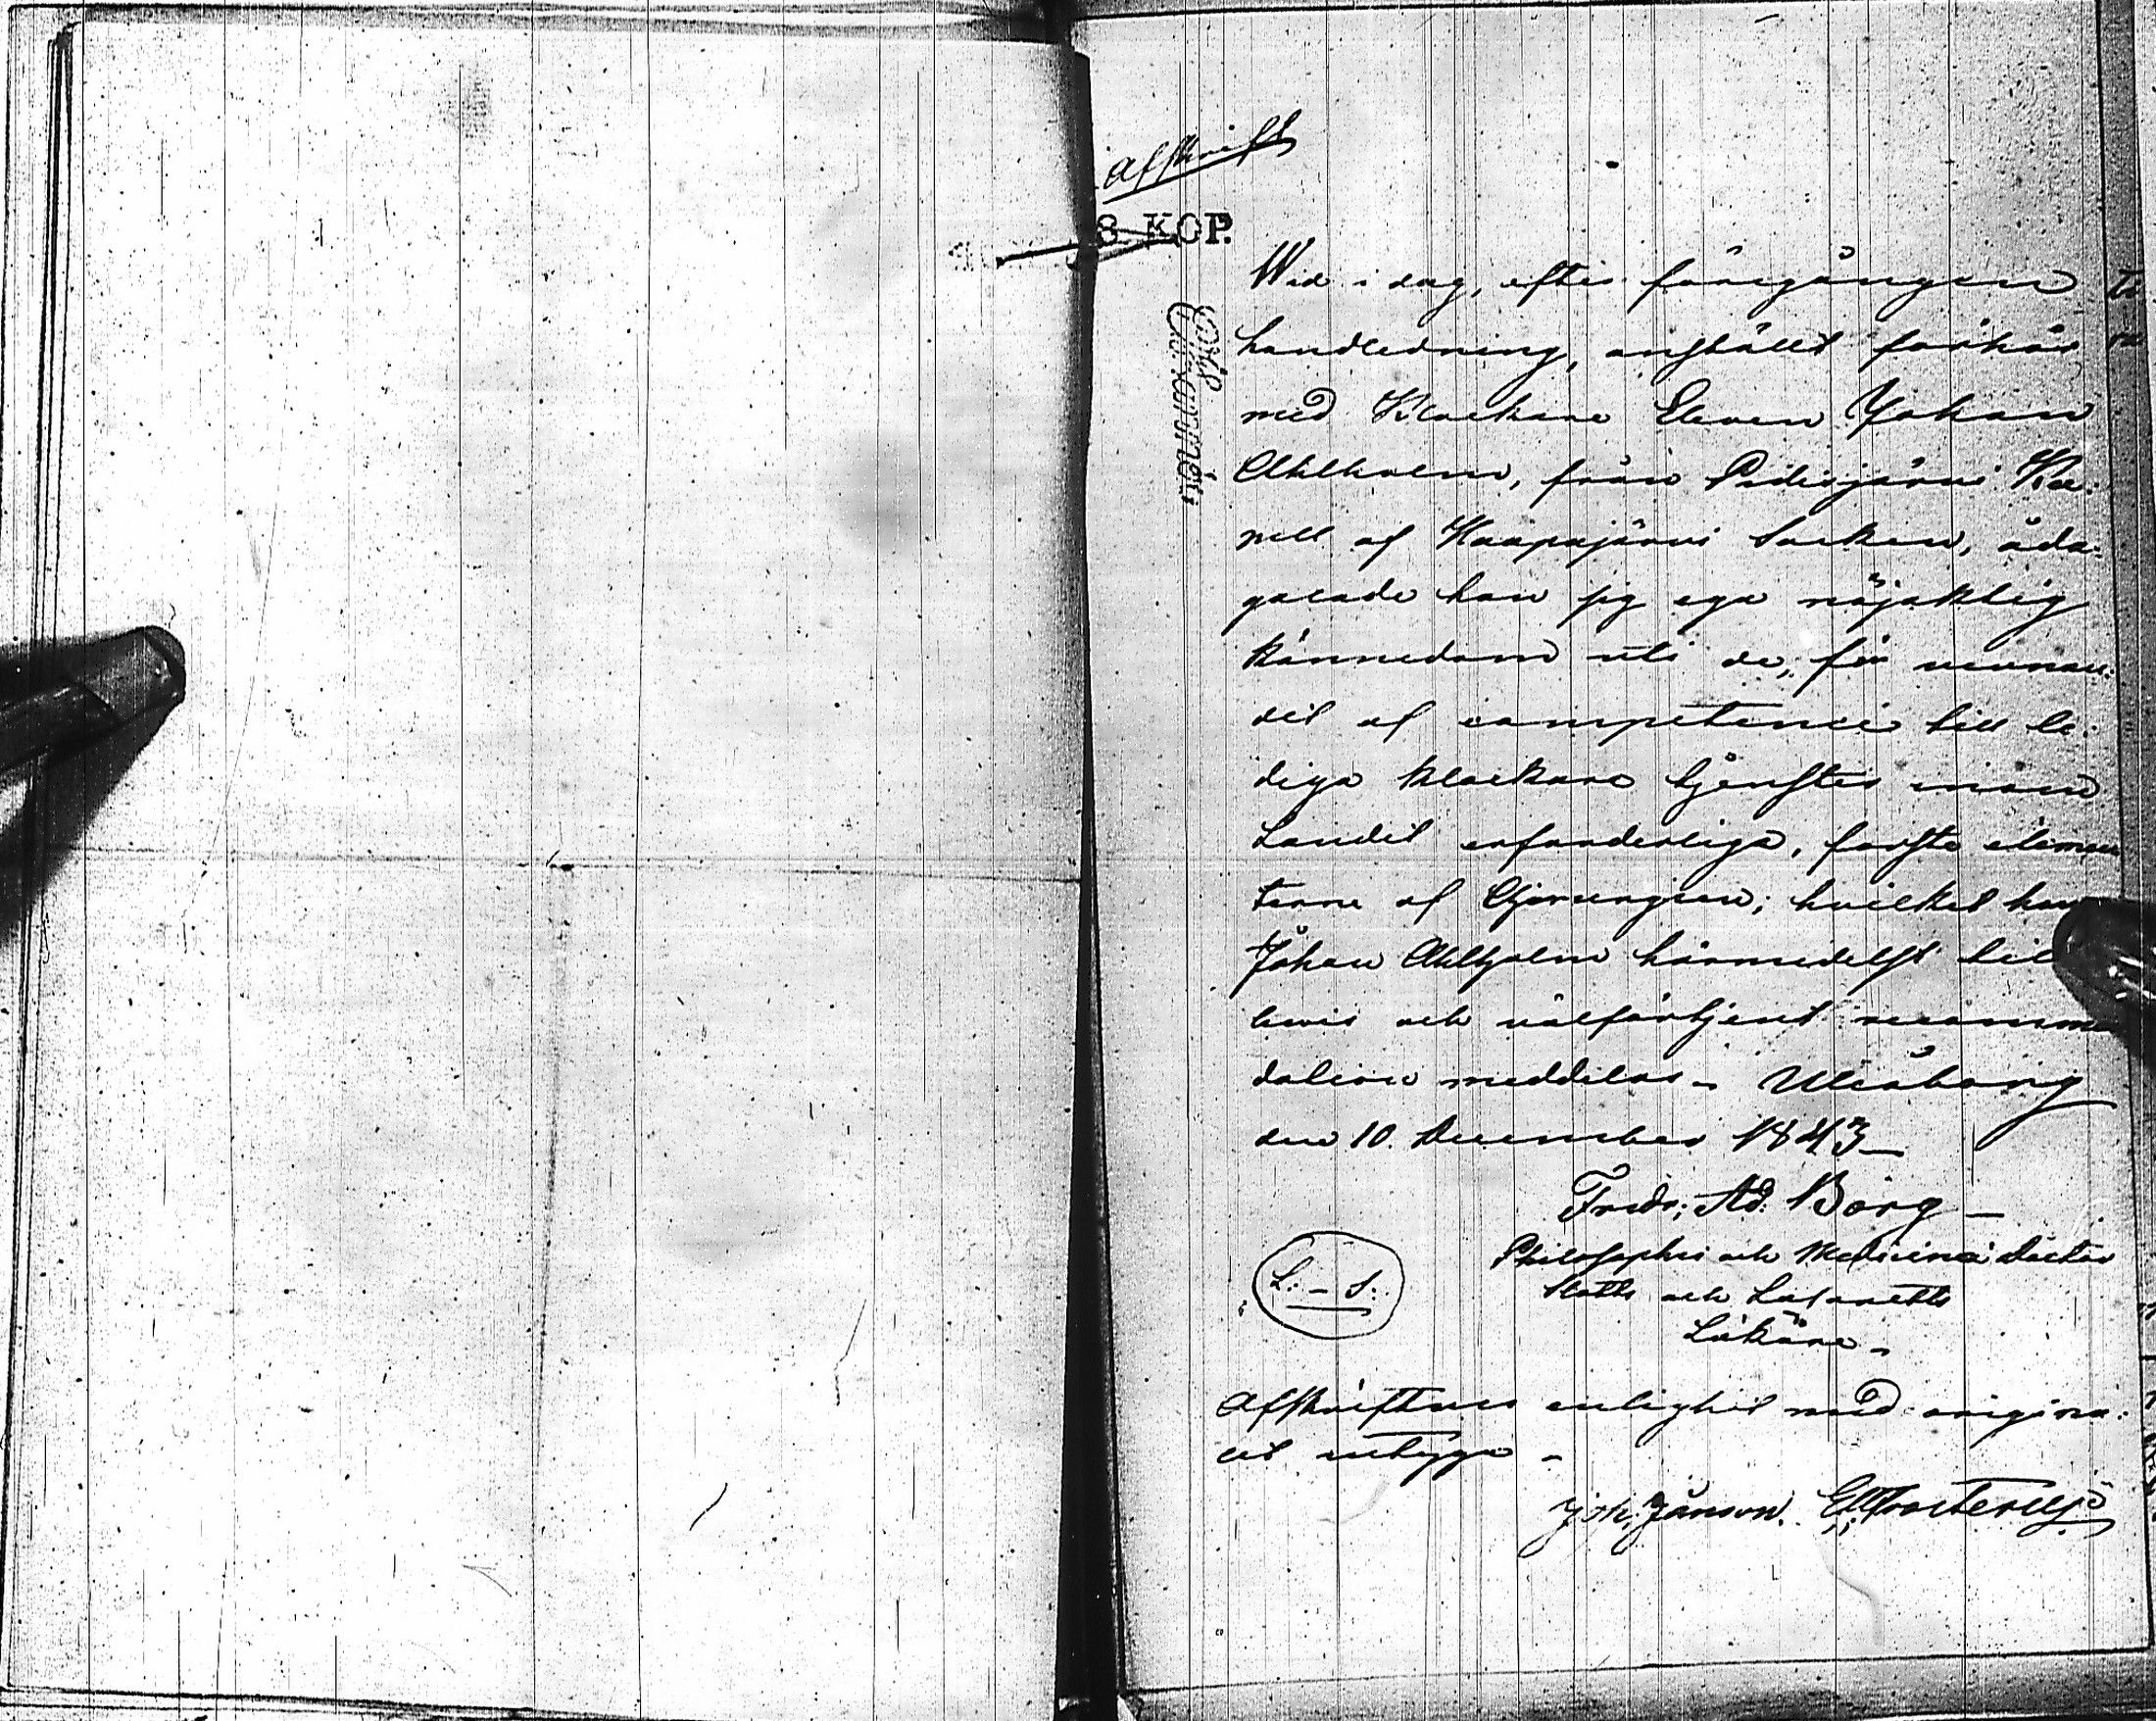 Afskrift
8 KOP.
Wid i dag, efter föregången
handledning, anstäldt förhör
med Klockare Eleven Johan
Ahlholm, från Pidisjärvi Ka:
pell af Haapajärvi Socken, åda:
galade han sig ega nöjaktig
kännedom uti de, för vinnan:
det af competence till le:
diga klockare tjenster inom
Landet erforderliga, första elemen
terne af Chirurgien; hvilket
Johan Ahlholm härmedelst till
bevis och välförtjent recomm
dation meddelas. Uleåborg
den 10. December 1843_
Fredr; Ad: Borg_
Philosophie och Medicine Doctor
Slotts och Lasaretts
Läkare_
L:_S:
Afskriftens enlighet med origina:
let intyga _
Joh. Jånson.